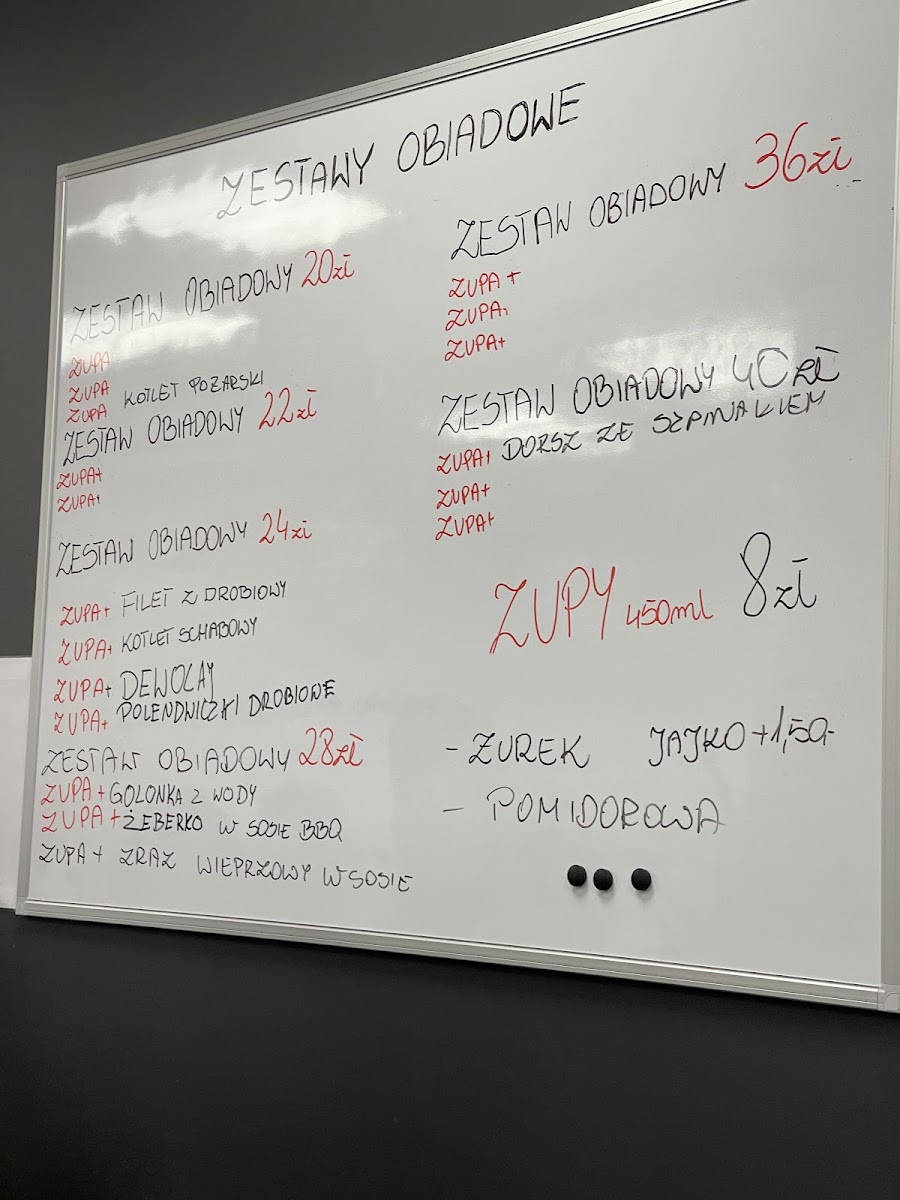 ZESTAWY OBIADOWE
ZESTAW OBIADOWY 20zł
ZUPA
ZUPA
ZUPA KOTLET POZARSKI
ZESTAW OBIADOWY 22zł
ZUPA+
ZUPA+
ZESTAW OBIADOWY 24zł
ZUPA+ FILET Z DROBIOWY
ZUPA+ KOTLET SCHABOWY
ZUPA+ DEWOLAJ
ZUPA+ POLENDWICZKI DROBIOWE
ZESTAW OBIADOWY 28zł
ZUPA+ GOLONKA Z WODY
ZUPA+ ŻEBERKO W SOSIE BBQ
ZUPA+ ZRAZ WIEPRZOWY W SOSIE
ZESTAW OBIADOWY 36zł
ZUPA+
ZUPA+
ZUPA+
ZESTAW OBIADOWY 40zł
ZUPA+ DORSZ ZE SZPINAKIEM
ZUPA+
ZUPA+
ZUPY 450ml 8zł
- ŻUREK JAJKO+1,50,-
- POMIDOROWA